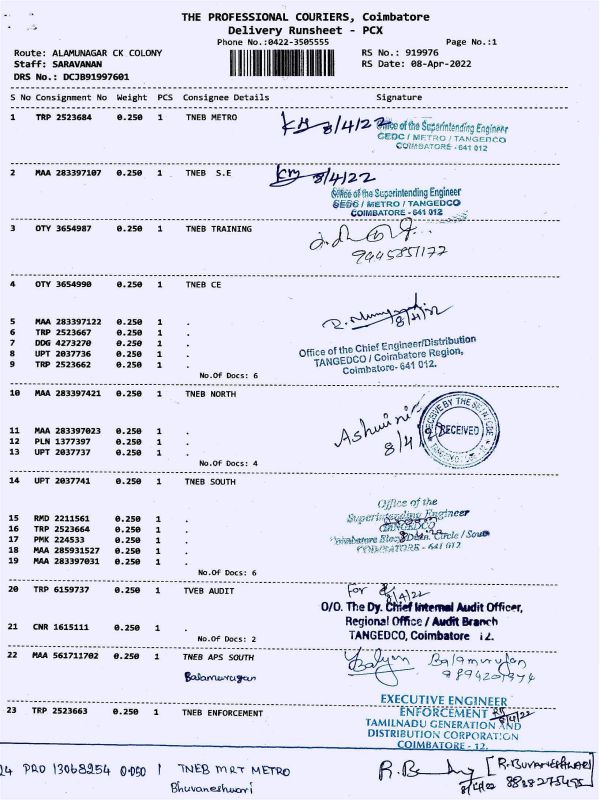 THE PROFESSIONAL COURIERS, Coimbatore
Delivery Runsheet - PCX
Phone No.:0422-3505555 Page No.:1
Route: ALAMUNAGAR CK COLONY RS No.: 919976
Staff: SARAVANAN RS Date: 08-Apr-2022
DRS No.: DCJB91997601
S No Consignment No Weight PCS Consignee Details Signature
1 TRP 2523684 0.250 1 TNEB METRO 8/4/22 Office of the Superintending Engineer
CEDC / METRO / TANGEDCO
COIMBATORE - 641 012
2 MAA 283397107 0.250 1 TNEB S.E 8/4/22
Office of the Superintending Engineer
CEDC / METRO / TANGEDCO
COIMBATORE - 641 012
3 OTY 3654987 0.250 1 TNEB TRAINING
4 OTY 3654990 0.250 1 TNEB CE
5 MAA 283397122 0.250 1 . 8/4/22
6 TRP 2523667 0.250 1 .
7 DDG 4273270 0.250 1 . Office of the Chief Engineer/Distribution
8 UPT 2037736 0.250 1 . TANGEDCO / Coimbatore Region,
9 TRP 2523662 0.250 1 . Coimbatore- 641 012.
No.Of Docs: 6
10 MAA 283397421 0.250 1 TNEB NORTH
Ashwini
11 MAA 283397023 0.250 1 . RECEIVED
12 PLN 1377397 0.250 1 . 8/4/22
13 UPT 2037737 0.250 1 .
No.Of Docs: 4
14 UPT 2037741 0.250 1 TNEB SOUTH
Office of the
15 RMD 2211561 0.250 1 . Superintending Engineer
16 TRP 2523664 0.250 1 . TANGEDCO
17 PMK 224533 0.250 1 . Coimbatore Elec. Circle / South
18 MAA 285931527 0.250 1 . COIMBATORE - 641 012
19 MAA 283397031 0.250 1 .
No.Of Docs: 6
20 TRP 6159737 0.250 1 TVEB AUDIT For 8/4/22
O/O. The Dy. Chief Internal Audit Officer,
21 CNR 1615111 0.250 1 . Regional Office / Audit Branch
No.Of Docs: 2 TANGEDCO, Coimbatore 12.
22 MAA 561711702 0.250 1 TNEB APS SOUTH Balamurugan
Balamurugan
EXECUTIVE ENGINEER
23 TRP 2523663 0.250 1 TNEB ENFORCEMENT ENFORCEMENT 8/4/22
TAMILNADU GENERATION AND
DISTRIBUTION CORPORATION
COIMBATORE - 12.
24 PRO 13068254 0.050 1 TNEB MRT METRO [R.BUVANESHWARI]
Bhuvaneshwari 8/4/22